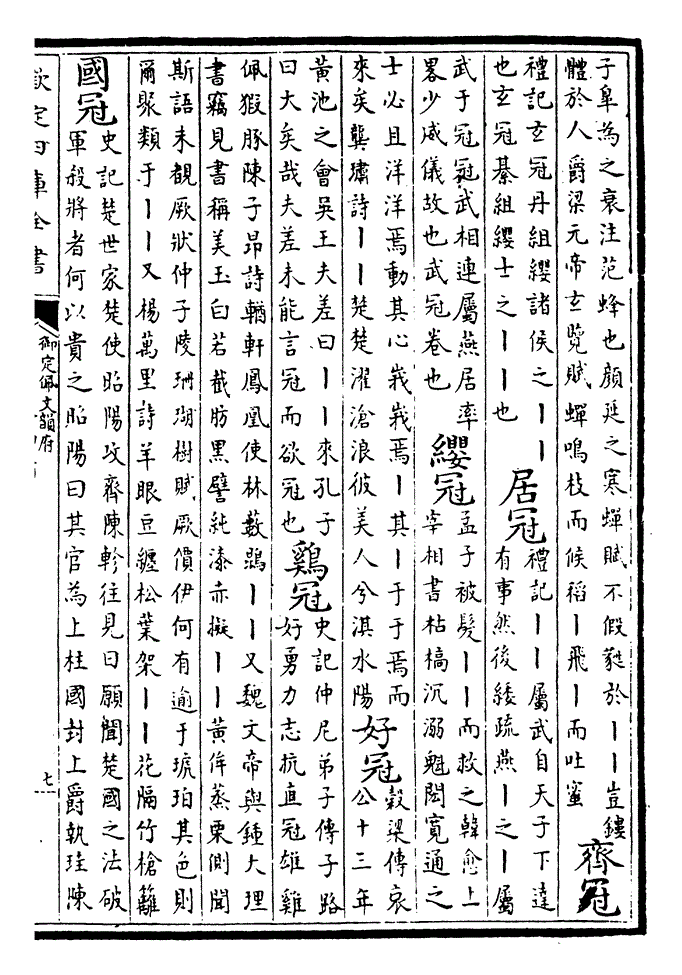 子皋為之衰注范蜂也顔延之寒蟬賦不假蕤於丨丨豈鏤
體於人爵梁元帝玄覽賦蟬鳴枝而候稻丨飛丨而吐蜜
齊冠
禮記玄冠丹組纓諸侯之丨丨
也玄冠綦組纓士之丨丨也
居冠
禮記丨丨屬武自天子下達
有事然後緌疏燕丨之丨屬
武于冠冠武相連屬燕居率
畧少威儀故也武冠卷也
纓冠
孟子被髮丨丨而救之韓愈上
宰相書枯槁沉溺魁閎寬通之
士必且洋洋焉動其心峩峩焉丨其丨于于焉而
來矣龔璛詩丨丨楚楚濯滄浪彼美人兮淇水陽
好冠
榖梁傳哀
公十三年
黃池之會吳王夫差曰丨丨來孔子
曰大矣哉夫差未能言冠而欲冠也
鷄冠
史記仲尼弟子傳子路
好勇力志抗直冠雄雞
佩猳豚陳子昂詩輶軒鳳凰使林藪鶡丨丨又魏文帝與鍾大理
書竊見書稱美玉白若截肪黑譬純漆赤擬丨丨黃侔蒸栗側聞
斯語未覩厥狀仲子陵珊瑚樹賦厥價伊何有逾于琥珀其色則
爾聚類于丨丨又楊萬里詩羊眼豆纏松葉架丨丨花隔竹槍籬
國冠
史記楚世家楚使昭陽攻齊陳軫往見曰願聞楚國之法破
軍殺將者何以貴之昭陽曰其官為上柱國封上爵執珪陳
欽定四庫全書
御定佩文韻府
七